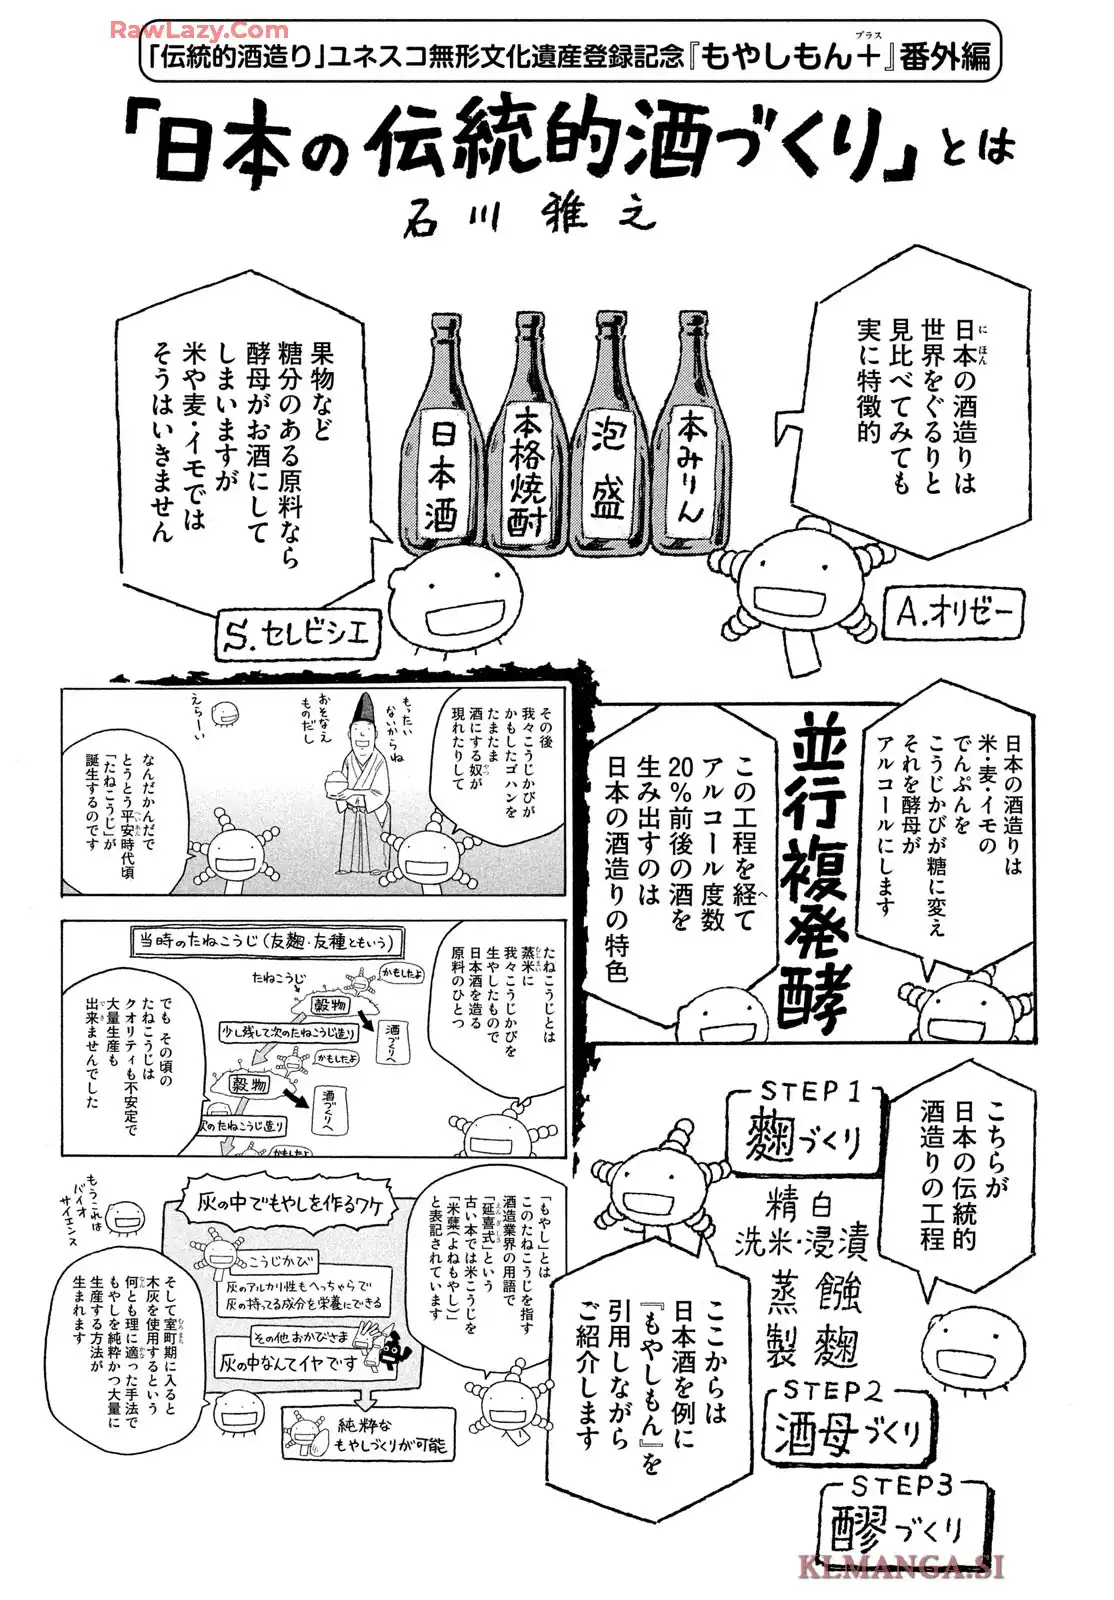 RawLazy.Com
「伝統的酒造り」ユネスコ無形文化遺産登録記念『もやしもん+』番外編
プラス
「日本の伝統的酒づくり」とは
石川雅之
日本の酒造りは
にほん
世界をぐるりと
見比べてみても
実に特徴的
本みりん
泡盛
本格焼酎
日本酒
A.オリゼー
果物など
糖分のある原料なら
酵母がお酒にして
しまいますが
米や麦・イモでは
そうはいきません
S.セレビシエ
日本の酒造りは
米・麦・イモの
でんぷんを
こうじかびが糖に変え
それを酵母が
アルコールにします
並行複発酵
この工程を経て
へ
アルコール度数
20%前後の酒を
生み出すのは
日本の酒造りの特色
こちらが
日本の伝統的
酒造りの工程
STEP1
麴づくり
精白
洗米・浸漬
蒸𩜙
製麴
STEP2
酒母づくり
STEP3
醪づくり
ここからは
日本酒を例に
『もやしもん』を
引用しながら
ご紹介します
その後
我々こうじかびが
かもしたゴハンを
たまたま
酒にする奴が
やつ
現れたりして
もったい
ないからね
おそなえ
ものだし
えらーい
なんだかんだで
とうとう平安時代頃
へいあん
「たねこうじ」が
誕生するのです
たねこうじとは
蒸米に
むしまい
我々こうじかびを
生やしたもので
日本酒を造る
原料のひとつ
当時のたねこうじ(友麹・友種ともいう)
たねこうじ
かもしたよ
穀物
少し残して次のたねこうじ造り
酒づくりへ
かもしたよ
穀物
酒づくりへ
次のたねこうじ造り
かもしたよ
でも その頃の
たねこうじは
クオリティも不安定で
大量生産も
出来ませんでした
でき
「もやし」とは
このたねこうじを指す
酒造業界の用語で
「延喜式」という
えんぎしき
古い本では米こうじを
「米糵(よねもやし)」
と表記されています
灰の中でもやしを作るワケ
こうじかび
灰のアルカリ性もへっちゃらで
灰の持ってる成分を栄養にできる
その他おかびさま
灰の中なんてイヤです
純粋な
もやしづくりが可能
もうこれは
バイオ
サイエンス
そして室町期に入ると
むろまち
木灰を使用するという
何とも理に適った手法で
なん
かな
もやしを純粋かつ大量に
生産する方法が
生まれます
KLMANGA.SI